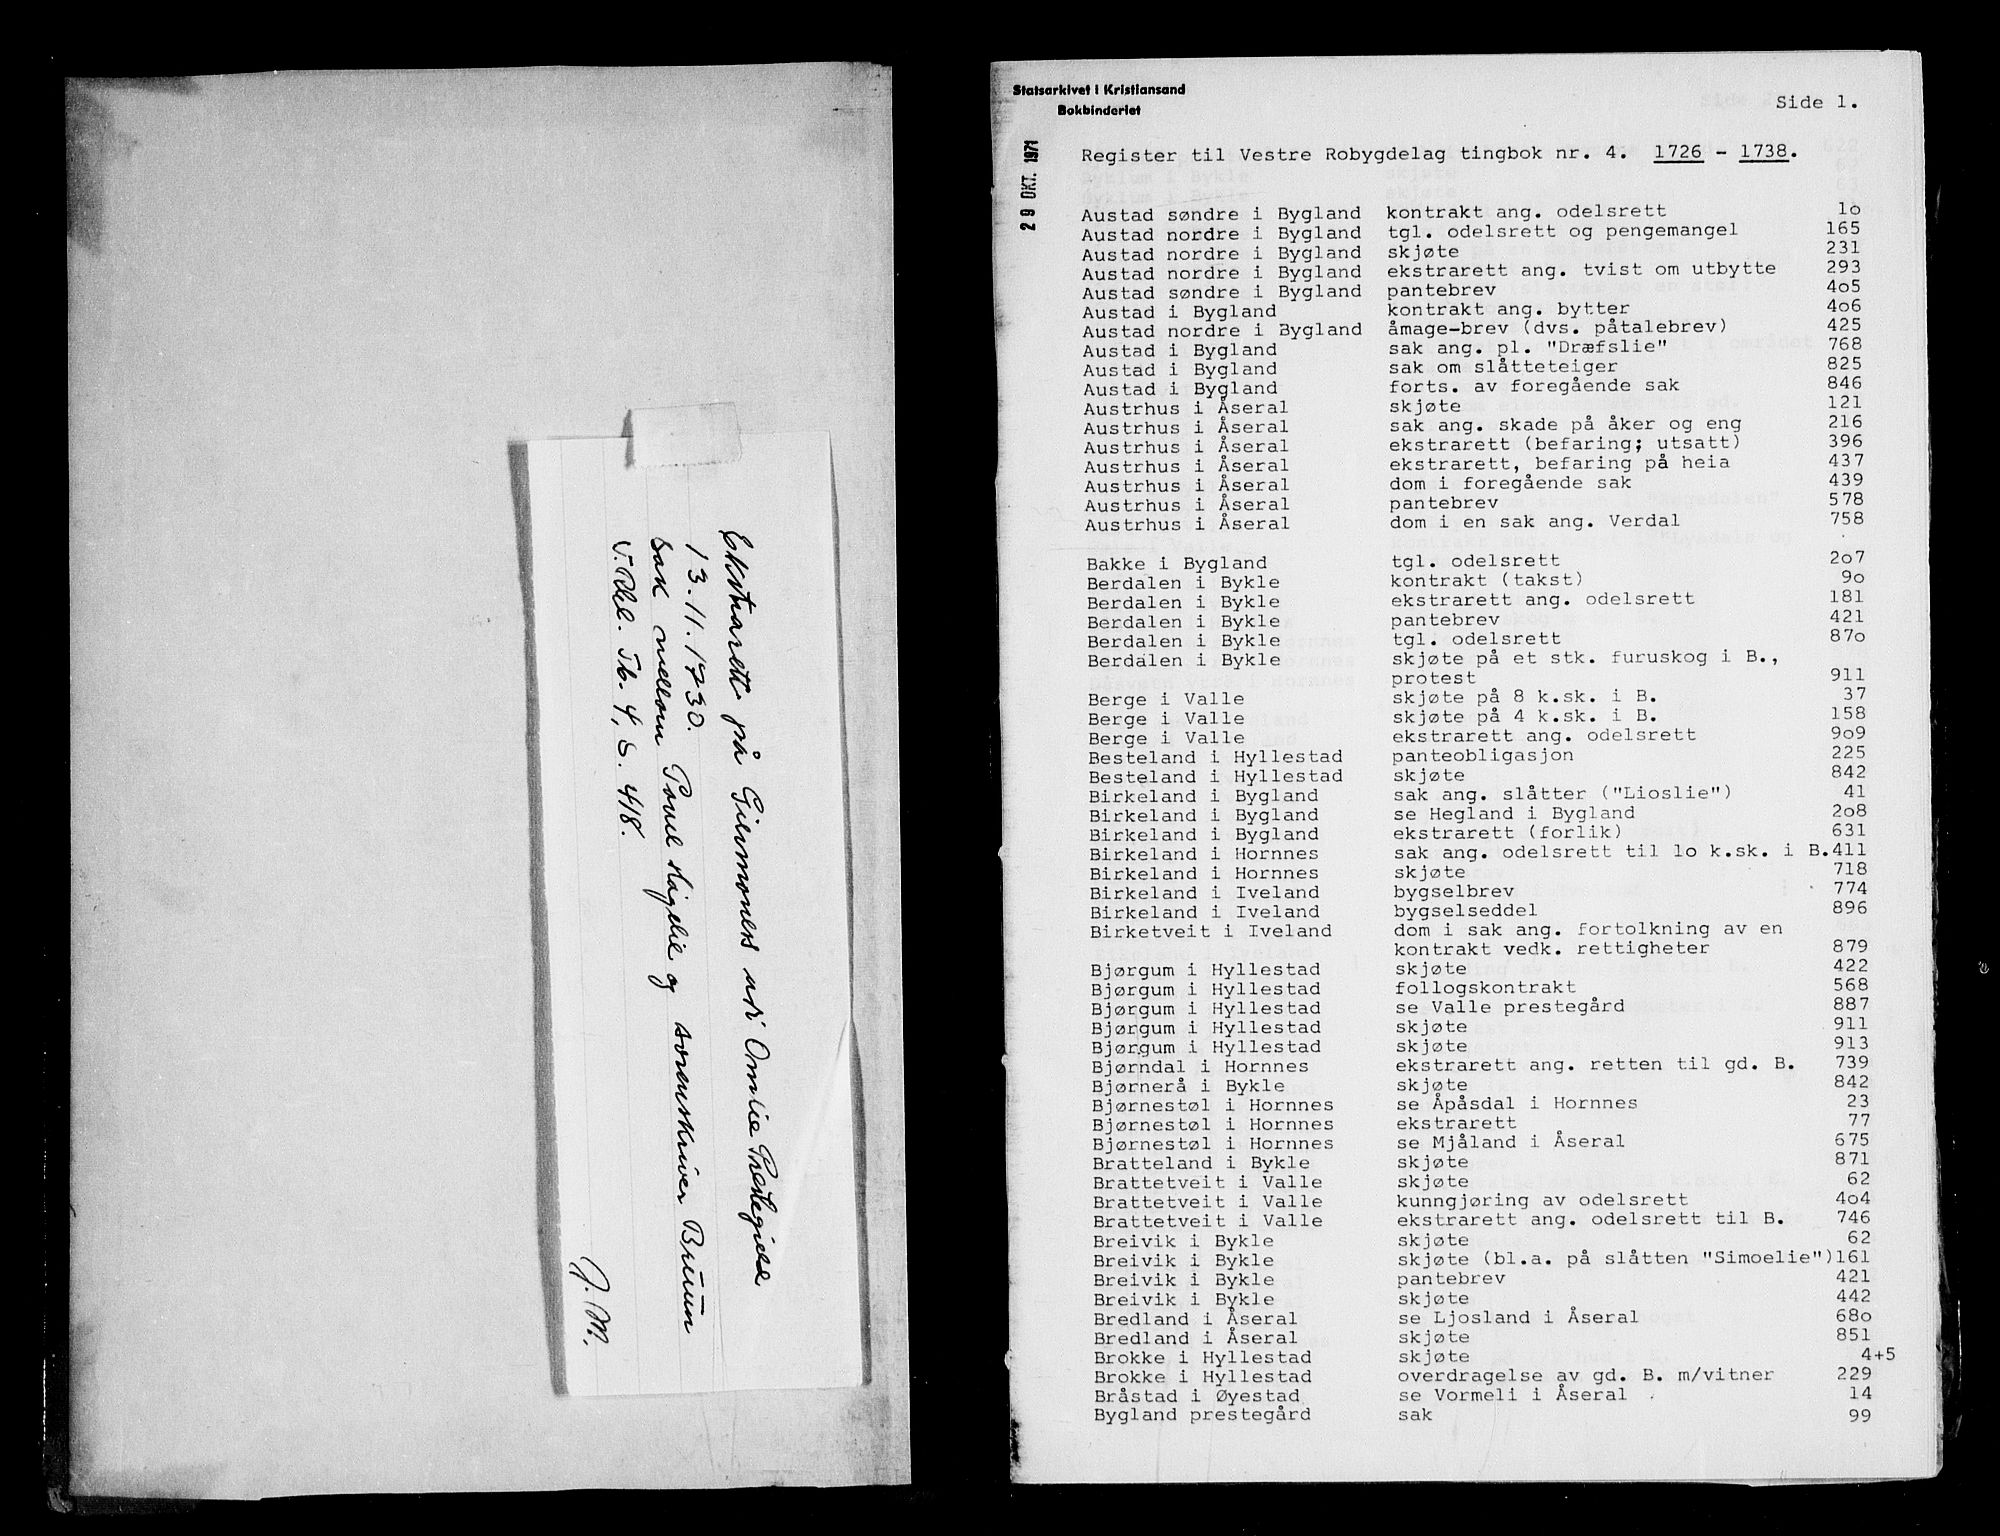 Ekstrarett på Giermoners ari Omlie Prestegield
13.11.1730.
sak mellom Povel Hagelie og sorenskriver Bruun
v. Rbl. Tb. 4, s. 418.
J. M.
Statsarkivet i Kristiansand
Bokbinderiet
29 OKT. 1971
Side 1.
Register til Vestre Robygdelag tingbok nr. 4. 1726 - 1738.
Austad søndre i Bygland kontrakt ang. odelsrett 1o
Austad nordre i Bygland tgl. odelsrett og pengemangel 165
Austad nordre i Bygland skjøte 231
Austad nordre i Bygland ekstrarett ang. tvist om utbytte 293
Austad søndre i Bygland pantebrev 4o5
Austad i Bygland kontrakt ang. bytter 4o6
Austad nordre i Bygland åmage-brev (dvs. påtalebrev) 425
Austad i Bygland sak ang. pl. "Dræfslie" 768
Austad i Bygland sak om slåtteteiger 825
Austad i Bygland forts. av foregående sak 846
Austrhus i Åseral skjøte 121
Austrhus i Åseral sak ang. skade på åker og eng 216
Austrhus i Åseral ekstrarett (befaring; utsatt) 396
Austrhus i Åseral ekstrarett, befaring på heia 437
Austrhus i Åseral dom i foregående sak 439
Austrhus i Åseral pantebrev 578
Austrhus i Åseral dom i en sak ang. Verdal 758
Bakke i Bygland tgl. odelsrett 2o7
Berdalen i Bykle kontrakt (takst) 9o
Berdalen i Bykle ekstrarett ang. odelsrett 181
Berdalen i Bykle pantebrev 421
Berdalen i Bykle tgl. odelsrett 87o
Berdalen i Bykle skjøte på et stk. furuskog i B.,
protest 911
Berge i Valle skjøte på 8 k.sk. i B. 37
Berge i Valle skjøte på 4 k.sk. i B. 158
Berge i Valle ekstrarett ang. odelsrett 9o9
Besteland i Hyllestad panteobligasjon 225
Besteland i Hyllestad skjøte 842
Birkeland i Bygland sak ang. slåtter ("Lioslie") 41
Birkeland i Bygland se Hegland i Bygland 2o8
Birkeland i Bygland ekstrarett (forlik) 631
Birkeland i Hornnes sak ang. odelsrett til 1o k.sk. i B. 411
Birkeland i Hornnes skjøte 718
Birkeland i Iveland bygselbrev 774
Birkeland i Iveland bygselseddel 896
Birketveit i Iveland dom i sak ang. fortolkning av en
kontrakt vedk. rettigheter 879
Bjørgum i Hyllestad skjøte 422
Bjørgum i Hyllestad follogskontrakt 568
Bjørgum i Hyllestad se Valle prestegård 887
Bjørgum i Hyllestad skjøte 911
Bjørgum i Hyllestad skjøte 913
Bjørndal i Hornnes ekstrarett ang. retten til gd. B. 739
Bjørnerå i Bykle skjøte 842
Bjørnestøl i Hornnes se Åpåsdal i Hornnes 23
Bjørnestøl i Hornnes ekstrarett 77
Bjørnestøl i Hornnes se Mjåland i Åseral 675
Bratteland i Bykle skjøte 871
Brattetveit i Valle skjøte 62
Brattetveit i Valle kunngjøring av odelsrett 4o4
Brattetveit i Valle ekstrarett ang. odelsrett til B. 746
Breivik i Bykle skjøte 62
Breivik i Bykle skjøte (bl.a. på slåtten "Simoelie") 161
Breivik i Bykle pantebrev 421
Breivik i Bykle skjøte 442
Bredland i Åseral se Ljosland i Åseral 68o
Bredland i Åseral skjøte 851
Brokke i Hyllestad skjøte 4+5
Brokke i Hyllestad overdragelse av gd. B. m/vitner 229
Bråstad i Øyestad se Vormeli i Åseral 14
Bygland prestegård sak 99